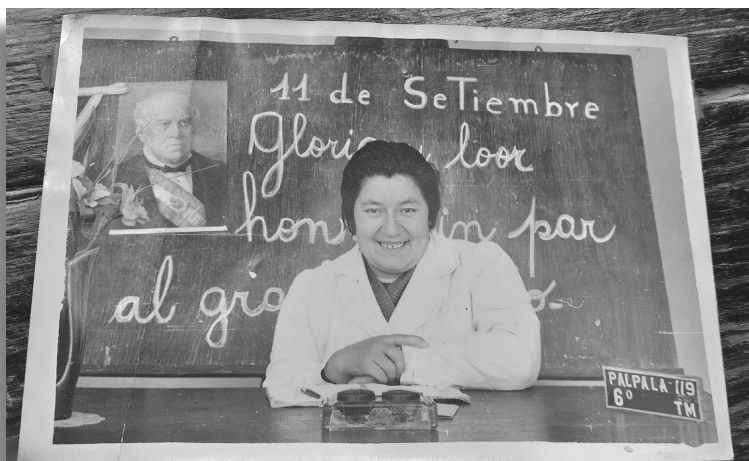 11 de SeTiembre
Gloria loor
hon in par
al gra o-
PALPALA-119
6º TM